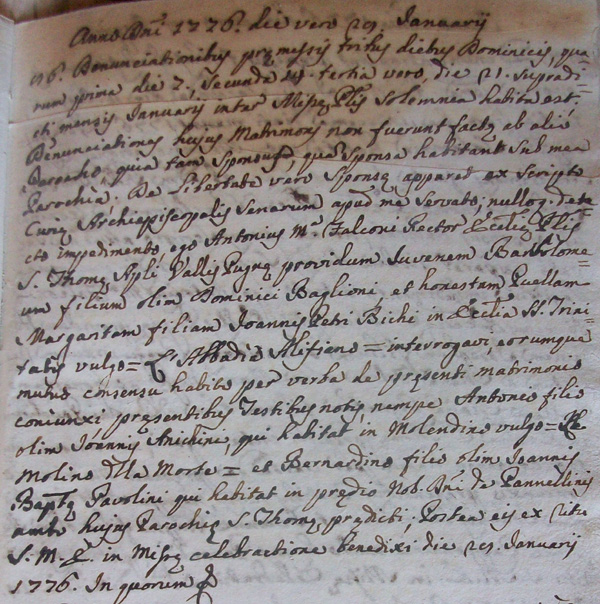 Anno Dni 1776. die vero 29. Januarij
116. Denunciationibus pręmissis tribus diebus Dominicis, quа=
rum prima die 7., Secunda 14. tertia vero, die 21. Supradi=
cti mensis Januarij inter Missę Plis Solemnia habita est.
Denunciationes hujus Matrimonij non fuerunt factę ab alio
Parocho, quia tam Sponsus, quā Sponsa habitant sub mea
Parochia. De libertate vero Sponsę apparet ex Scripto
Curię Archiepiscopalis Senarum apud me servato; nulloq. dete
cto impedimento, ego Antonius Ma. Falconi Rector Ecclię Plis
S. Thomę Apli Vallis Pugnę providum Iuvenem Bartholome
um filium olim Dominici Baglioni, et honestam Puellam
Margaritam filiam Joannis Petri Bichi in Ecclia SS. Trini
tatis vulgo= L'Abbadia Alfiano= interrogavi, eorumque
mutuo consensu habito per verba de pręsenti matrimonio
coniunxi pręsentibus Testibus notis, nempe Antonio filio
olim Joannis Anichini, qui habitat in Molendino vulgo= Il
molino dlla Morte= et Bernardino filio olim Joannis
Baptę Pavolini qui habitat in prędio Nob. Dni de Pannellinis
ambo hujus Parochię S. Thomę prędicti; Postea eis ex Ritu
S. M. E. in Missę celebractione benedixi die 29. Januarij
1776. In quorum